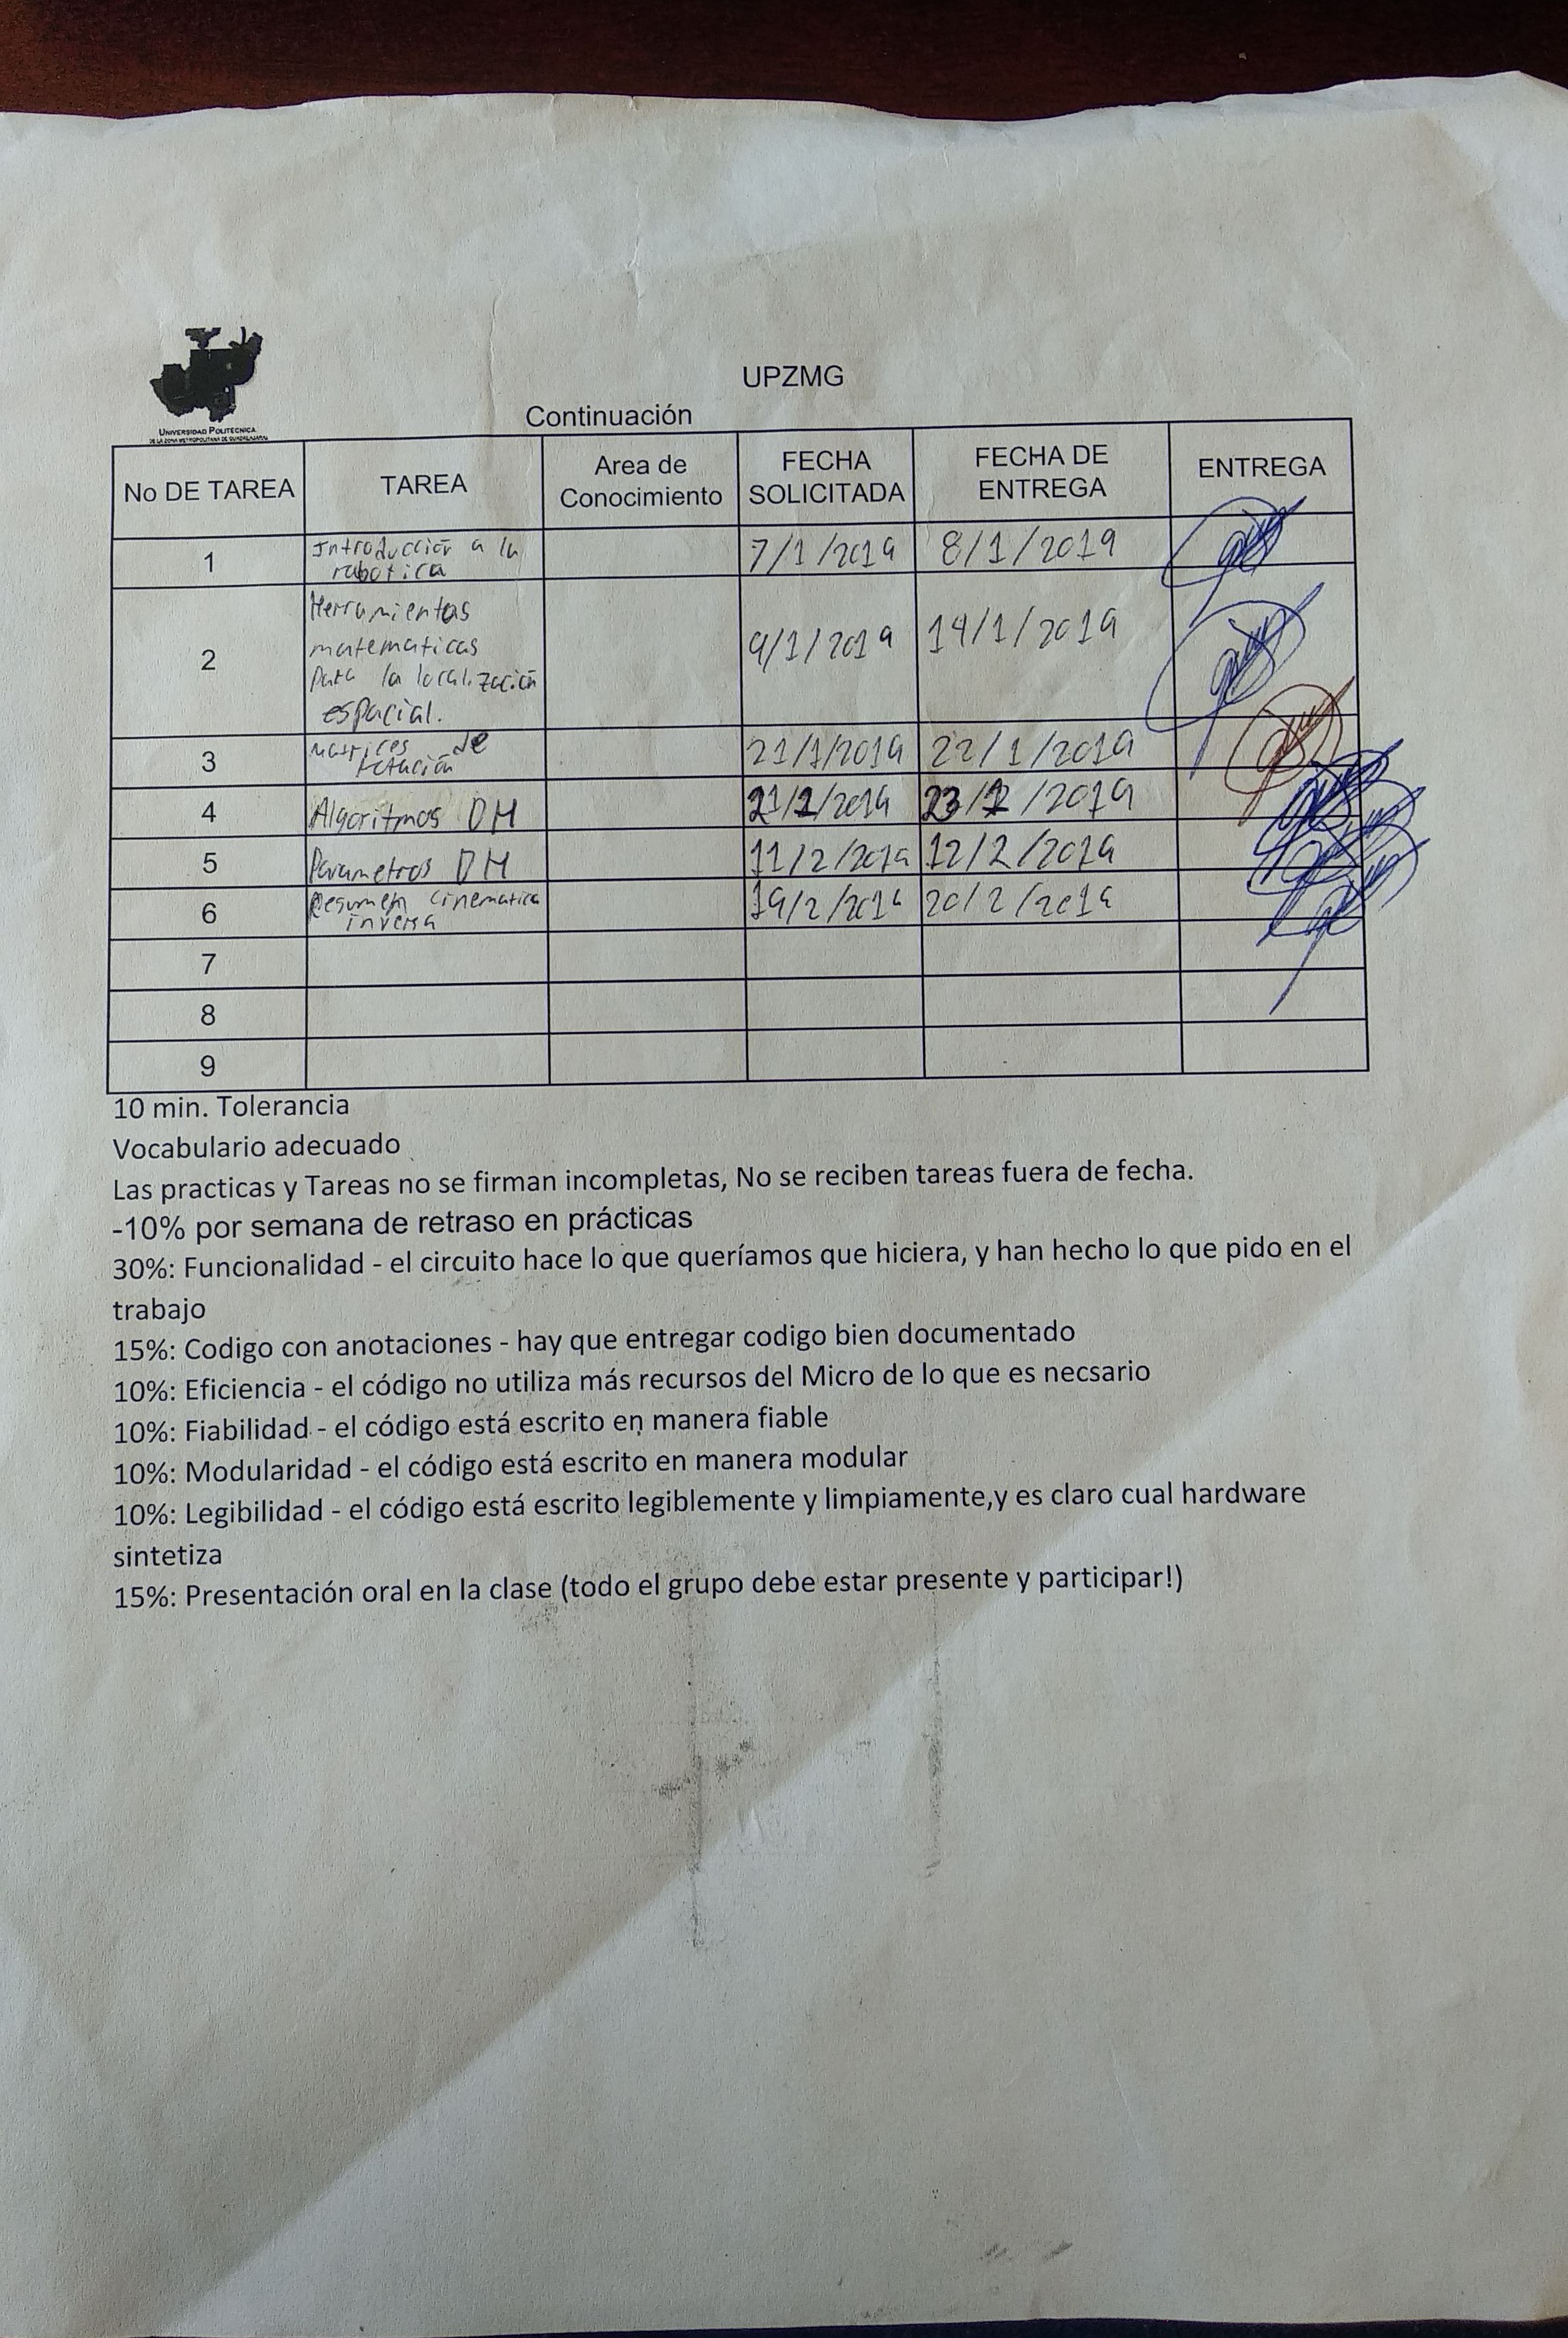 UNIVERSIDAD POLITÉCNICA
DE LA ZONA METROPOLITANA DE GUADALAJARA
UPZMG
Continuación
No DE TAREA TAREA Area de Conocimiento FECHA SOLICITADA FECHA DE ENTREGA ENTREGA
1 Introducción a la robotica 7/1/2019 8/1/2019
2 Herramientas matematicas para la localización espacial. 9/1/2019 14/1/2019
3 Matrices de rotación 21/1/2019 22/1/2019
4 Algoritmos DH /2019 /2019
5 Parametros DH 11/2/2019 12/2/2019
6 Resumen cinematica inversa 19/2/2019 20/2/2019
7
8
9
10 min. Tolerancia
Vocabulario adecuado
Las practicas y Tareas no se firman incompletas, No se reciben tareas fuera de fecha.
-10% por semana de retraso en prácticas
30%: Funcionalidad - el circuito hace lo que queríamos que hiciera, y han hecho lo que pido en el
trabajo
15%: Codigo con anotaciones - hay que entregar codigo bien documentado
10%: Eficiencia - el código no utiliza más recursos del Micro de lo que es necsario
10%: Fiabilidad - el código está escrito en manera fiable
10%: Modularidad - el código está escrito en manera modular
10%: Legibilidad - el código está escrito legiblemente y limpiamente,y es claro cual hardware
sintetiza
15%: Presentación oral en la clase (todo el grupo debe estar presente y participar!)